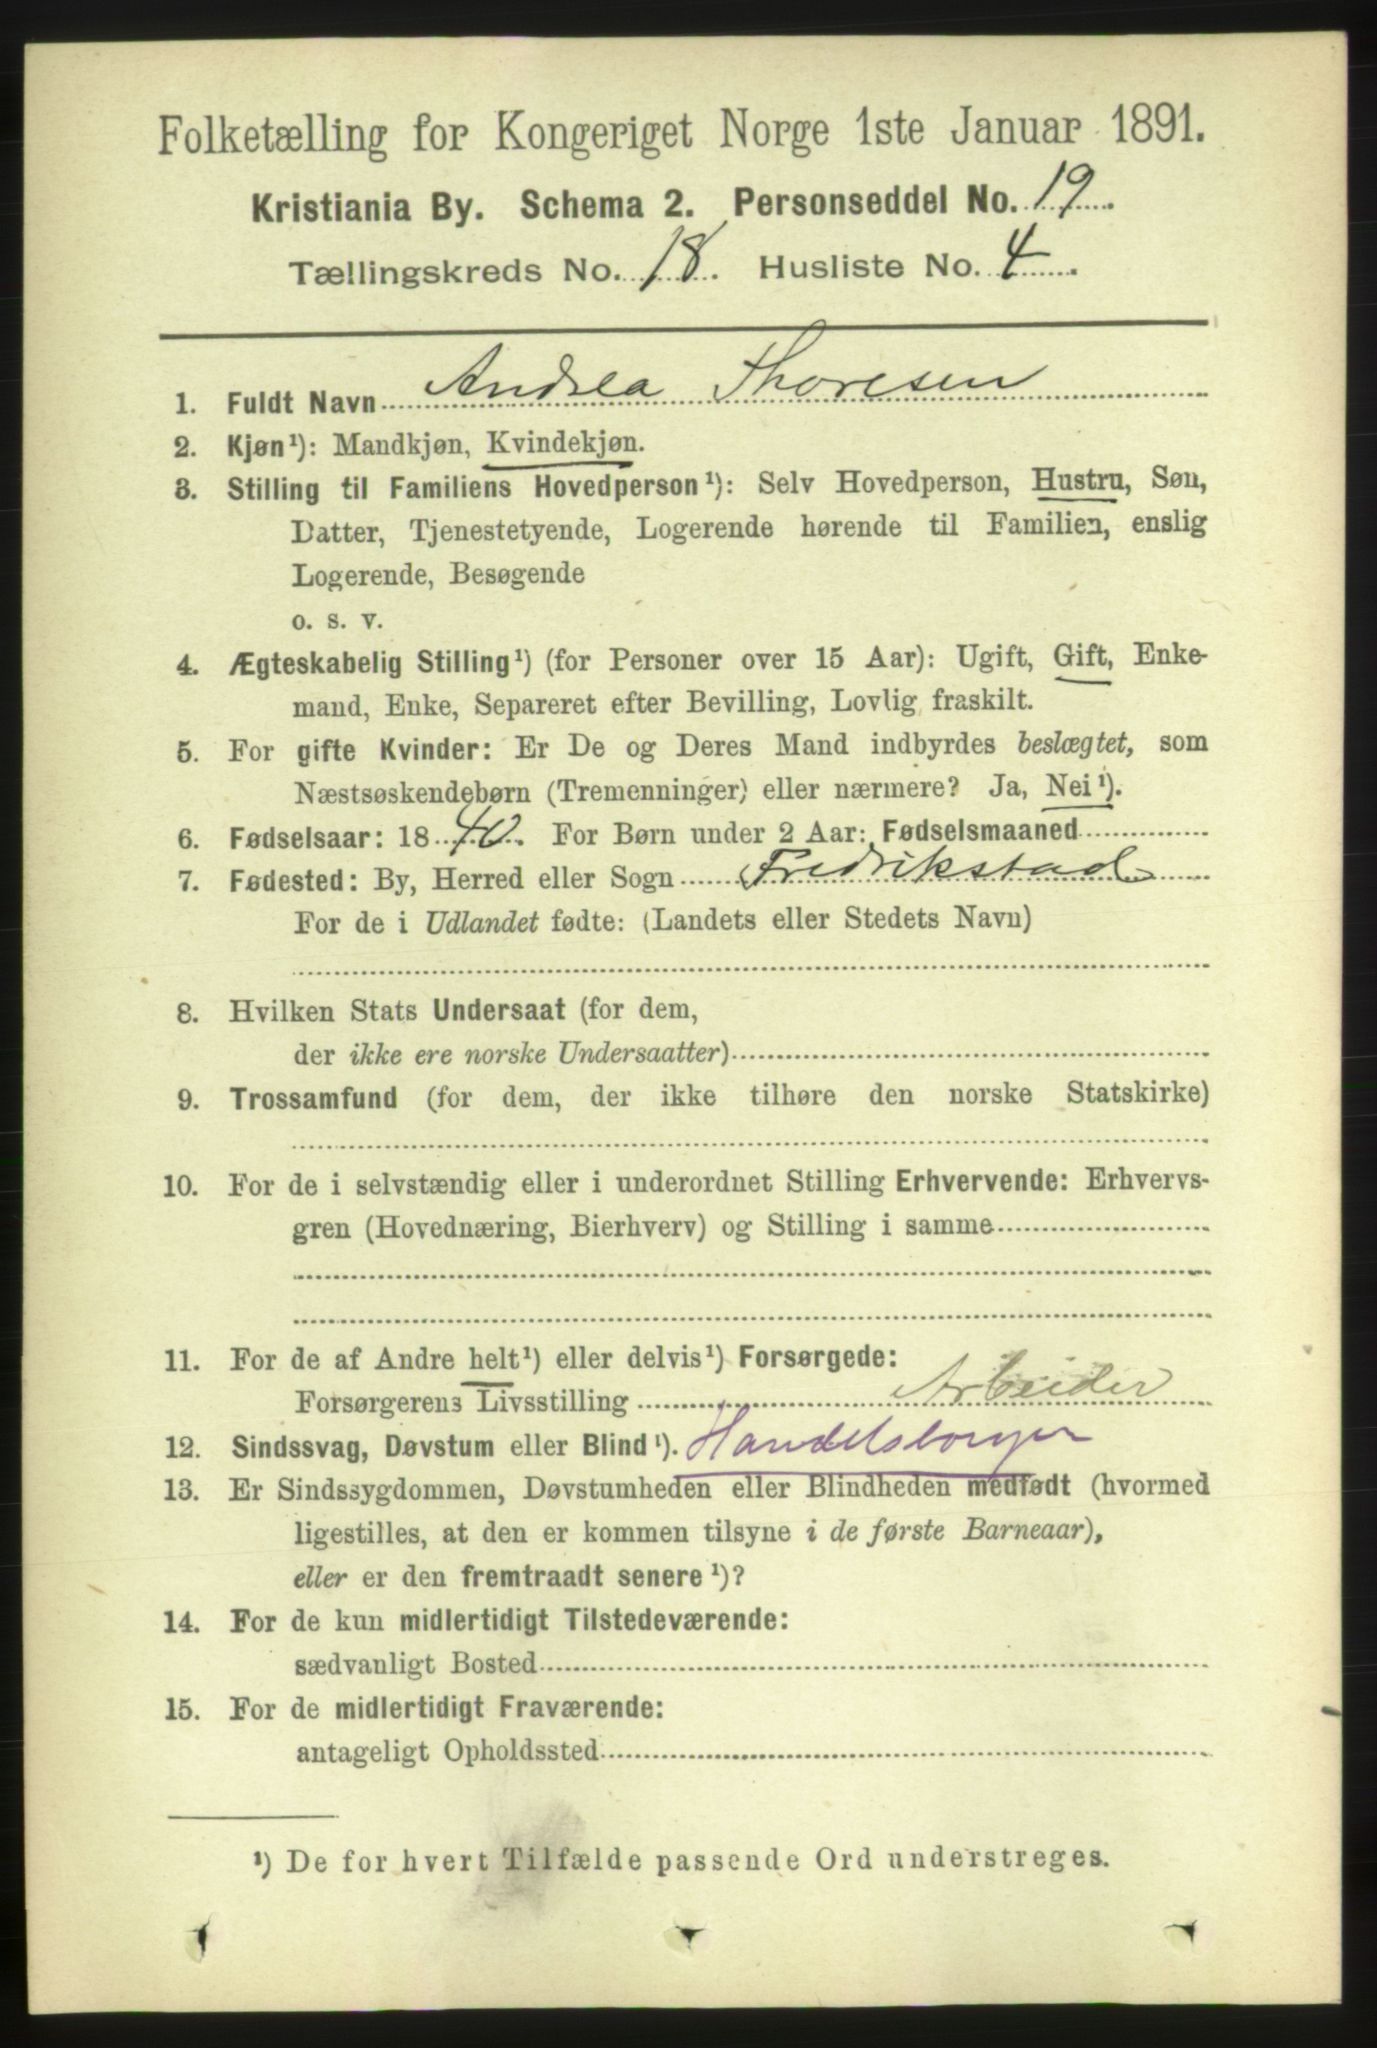 Folketælling for Kongeriget Norge 1ste Januar 1891.
Kristiania By. Schema 2. Personseddel No. 19.
Tællingskreds No. 18. Husliste No. 4.
1. Fuldt Navn Andrea Thoresen
2. Kjøn¹): Mandkjøn, Kvindekjøn.
3. Stilling til Familiens Hovedperson¹): Selv Hovedperson, Hustru, Søn,
Datter, Tjenestetyende, Logerende hørende til Familien, enslig
Logerende, Besøgende
o. s. v.
4. Ægteskabelig Stilling¹) (for Personer over 15 Aar): Ugift, Gift, Enke-
mand, Enke, Separeret efter Bevilling, Lovlig fraskilt.
5. For gifte Kvinder: Er De og Deres Mand indbyrdes beslægtet, som
Næstsøskendebørn (Tremenninger) eller nærmere? Ja, Nei¹).
6. Fødselsaar: 1840. For Børn under 2 Aar: Fødselsmaaned
7. Fødested: By, Herred eller Sogn Fredrikstad
For de i Udlandet fødte: (Landets eller Stedets Navn)
8. Hvilken Stats Undersaat (for dem,
der ikke ere norske Undersaatter)
9. Trossamfund (for dem, der ikke tilhøre den norske Statskirke)
10. For de i selvstændig eller i underordnet Stilling Erhvervende: Erhvervs-
gren (Hovednæring, Bierhverv) og Stilling i samme
11. For de af Andre helt¹) eller delvis¹) Forsørgede:
Forsørgerens Livsstilling Arbeider
12. Sindssvag, Døvstum eller Blind¹). Handelsborger
13. Er Sindssygdommen, Døvstumheden eller Blindheden medfødt (hvormed
ligestilles, at den er kommen tilsyne i de første Barneaar),
eller er den fremtraadt senere¹)?
14. For de kun midlertidigt Tilstedeværende:
sædvanligt Bosted
15. For de midlertidigt Fraværende:
antageligt Opholdssted
¹) De for hvert Tilfælde passende Ord understreges.